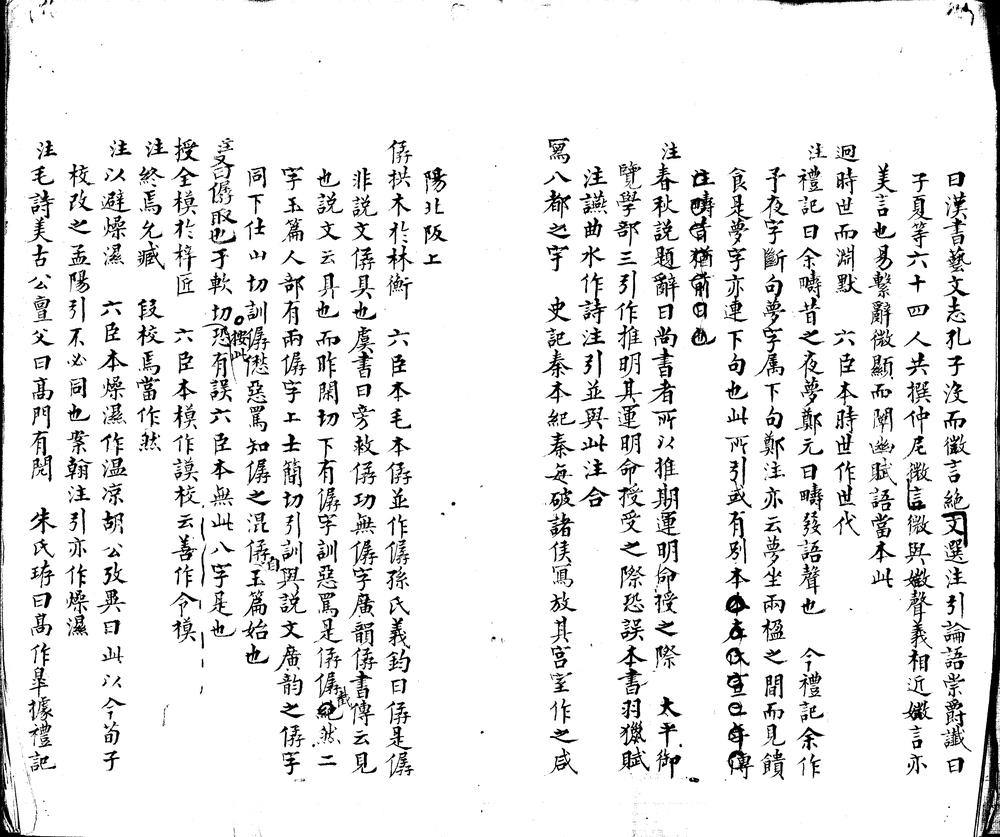 曰漢書藝文志孔子沒而微言絕文選注引論語崇爵讖曰
子夏等六十四人共撰仲尼微言微與媺聲義相近媺言亦
美言也易繫辭微顯而闡幽賦語當本此
迥時世而淵默　六臣本時世作世代
注禮記曰余疇昔之夜夢鄭元曰疇發語聲也　今禮記余作
予夜字斷句夢字属下句鄭注亦云夢坐兩楹之間而見饋
食是夢字亦連下句也此所引或有別本
注疇昔猶前日也
注春秋説題辭曰尚書者所以推期運明命授之際　太平御
覽學部三引作推明其運明命授受之際恐誤本書羽獵賦
注讌曲水作詩注引並與此注合
寫八都之宇　史記秦本紀秦每破諸侯寫放其宮室作之咸
陽北阪上
僝拱木於林衡　六臣本毛本僝並作僝孫氏義鈞曰僝是僝
非説文僝具也虞書曰旁救僝功無僝字廣韻僝書傳云見
也説文云具也而昨閑切下有僝字訓惡罵是僝僝截然二
字玉篇人部有兩僝字上士簡切引訓與説文廣韵之僝字
同下仕山切訓僝僽惡罵知僝之混僝自玉篇始也
注善曰僝取也于軟切按此恐有誤六臣本無此八字是也
授全模於梓匠　六臣本模作謨校云善作令模
注終焉允臧　段校焉當作然
注以避燥濕　六臣本燥濕作温凉胡公攷異曰此以今荀子
校改之孟陽引不必同也案翰注引亦作燥濕
注毛詩美古公亶父曰高門有閌　朱氏珔曰高作臯據禮記